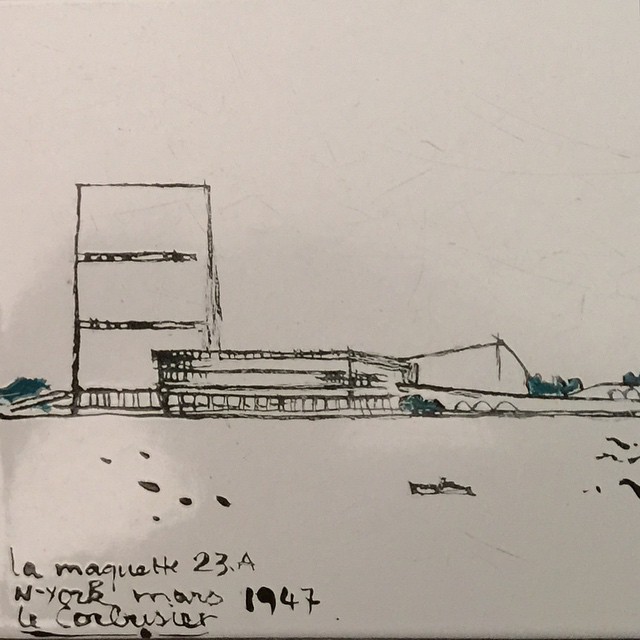 la maquette 23.A
N-York mars 1947
Le Corbusier